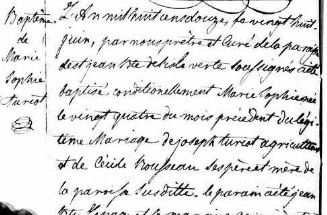 Baptême
de
Marie
Sophie
Turcot
L'An mil huit cens douze, le vingt huit
juin, par nous prêtre et Curé de la paroisse
de st jean Bte de lisle verte soussignés a été
baptisé conditionellement Marie Sophie née
le vingt quatre du mois précédent du légi
time Mariage de joseph turcot agriculteur
et de Cécile Rousseau ses père et mère de
la paroisse susditte. le parain a été jean
Bte